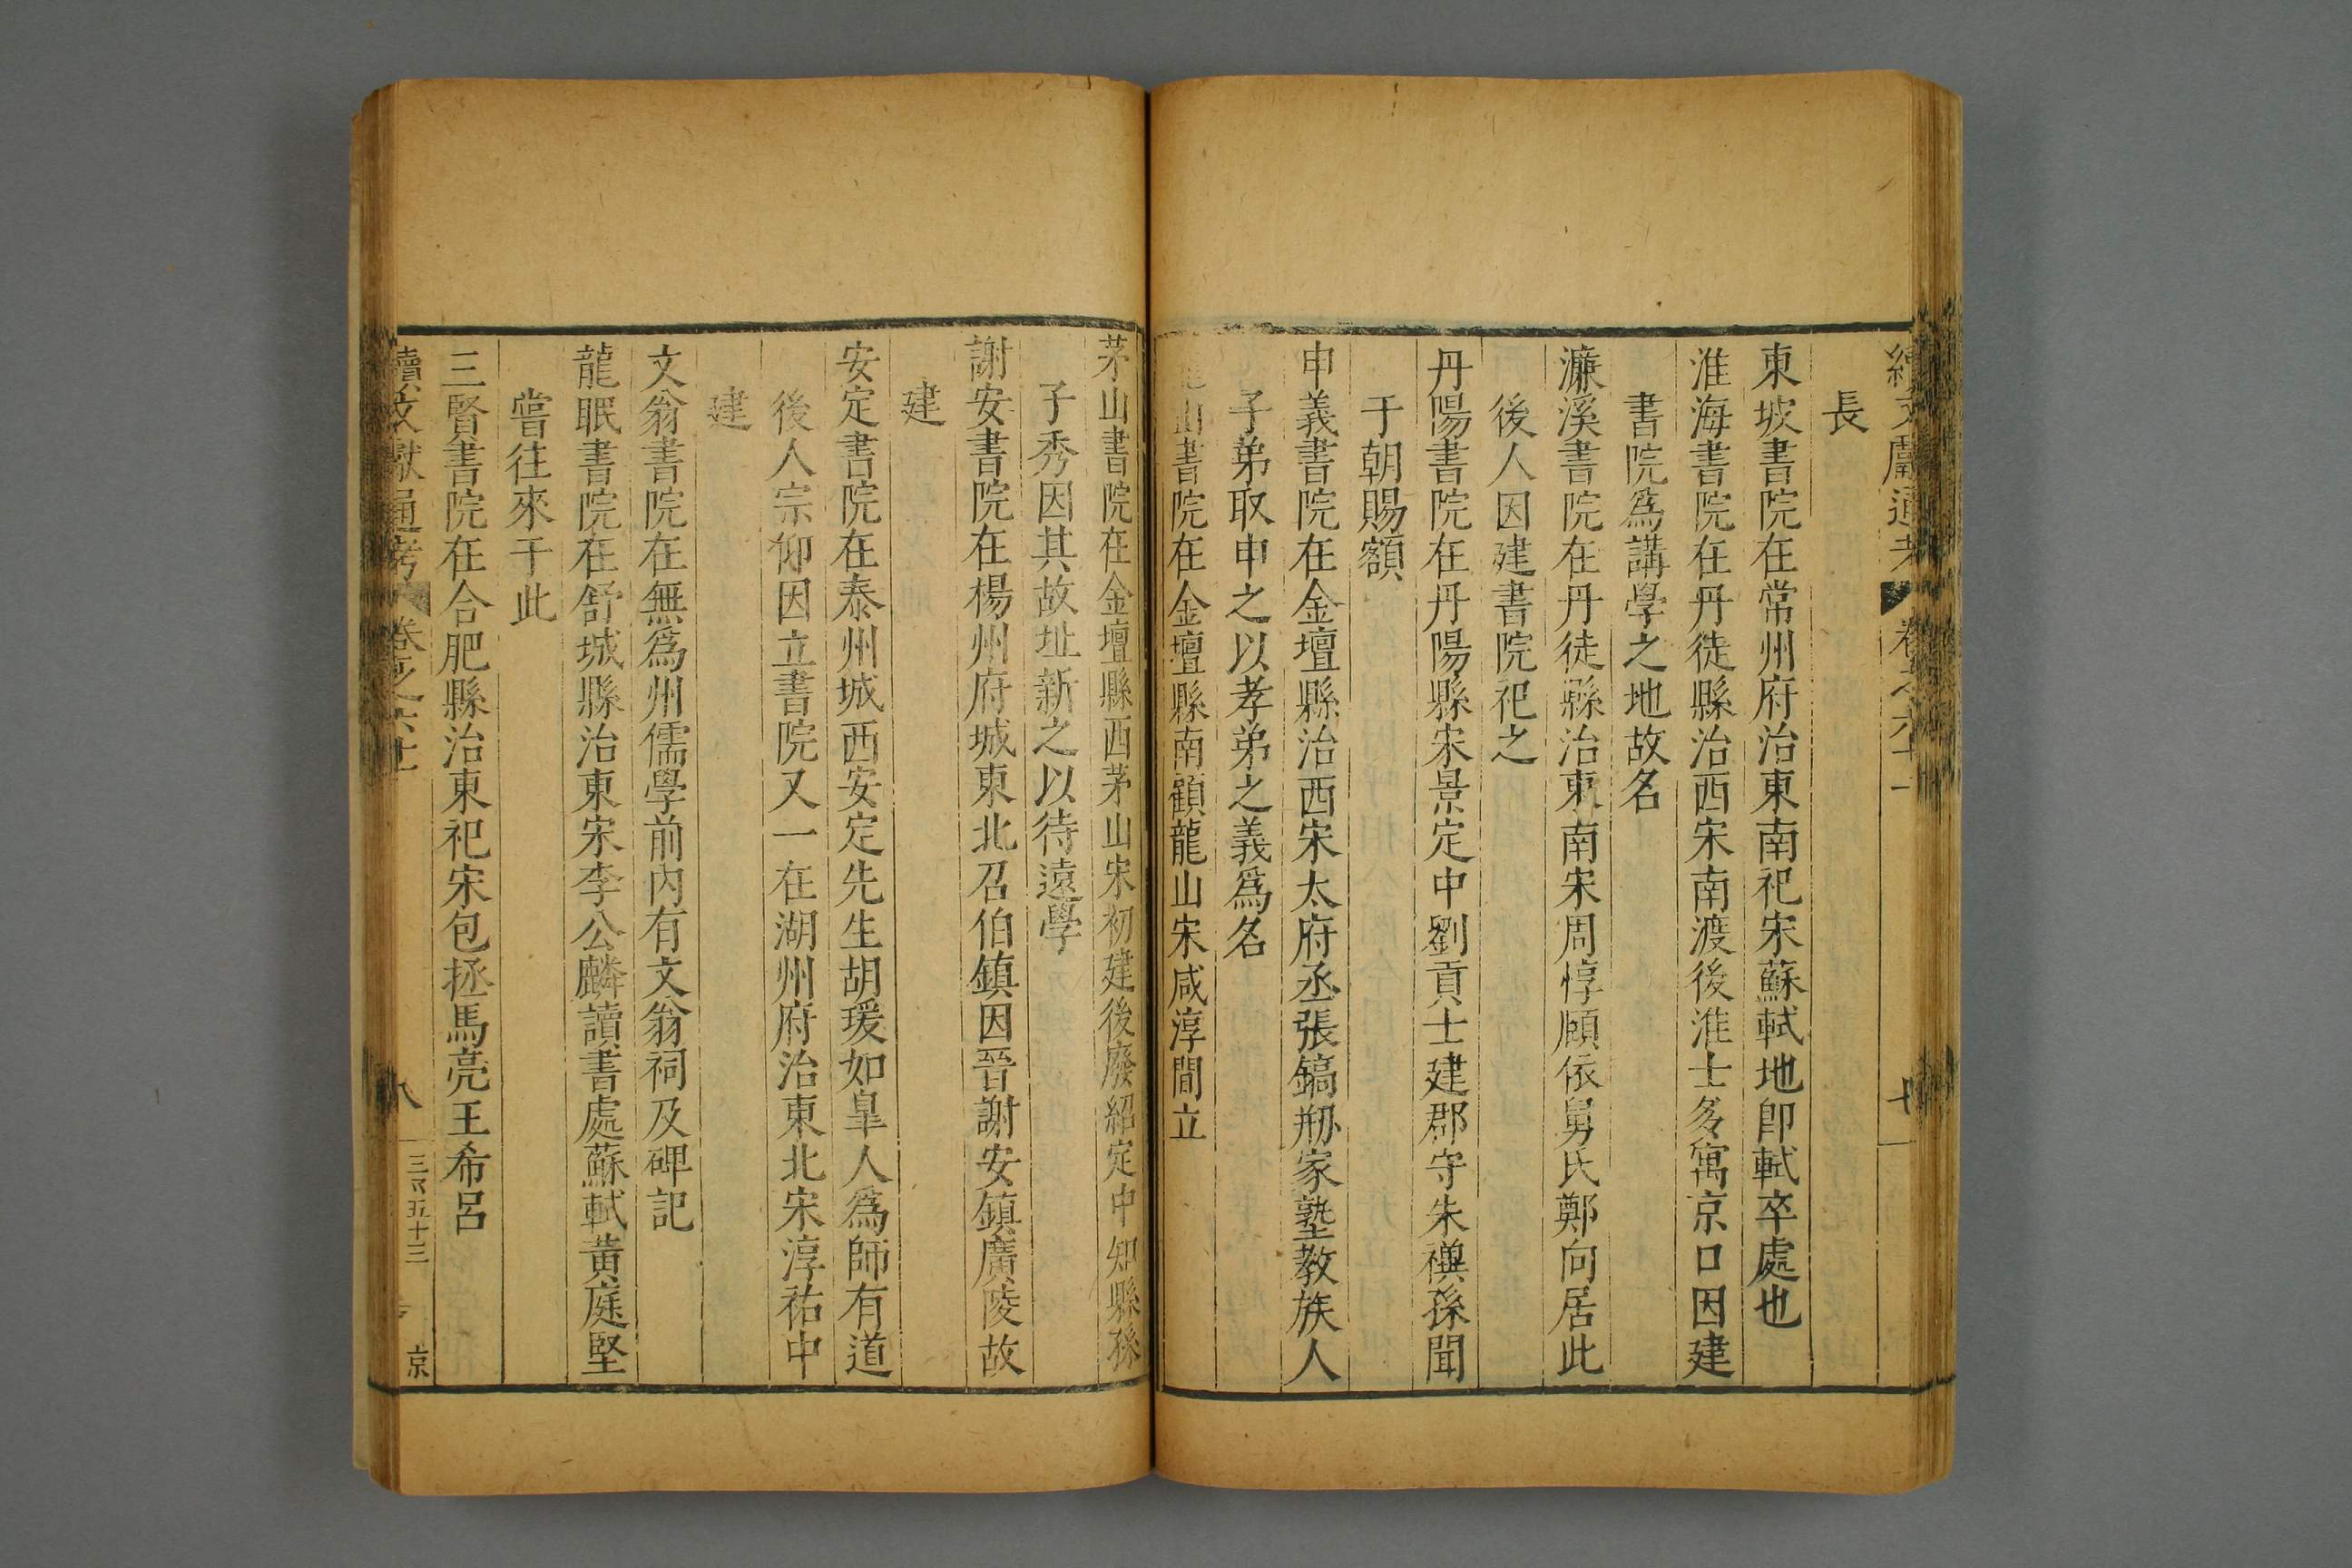 續文獻通考 卷之六十一 七
長
東坡書院在常州府治東南祀宋蘇軾地卽軾卒處也
淮海書院在丹徒縣治西宋南渡後淮士多寓京口因建
書院爲講學之地故名
濂溪書院在丹徒縣治東南宋周惇頤依舅氏鄭向居此
後人因建書院祀之
丹陽書院在丹陽縣宋景定中劉貢士建郡守朱禩孫聞
于朝賜額
申義書院在金壇縣治西宋太府丞張鎬刱家塾教族人
子弟取申之以孝弟之義爲名
龍山書院在金壇縣南顧龍山宋咸淳間立
茅山書院在金壇縣西茅山宋初建後廢紹定中知縣孫
子秀因其故址新之以待遠學
謝安書院在楊州府城東北召伯鎮因晉謝安鎮廣陵故
建
安定書院在泰州城西安定先生胡瑗如皐人爲師有道
後人宗仰因立書院又一在湖州府治東北宋淳祐中
建
文翁書院在無爲州儒學前內有文翁祠及碑記
龍眠書院在舒城縣治東宋李公麟讀書處蘇軾黃庭堅
嘗往來于此
三賢書院在合肥縣治東祀宋包拯馬亮王希呂
續文獻通考 卷之六十一 八 三百五十三 京